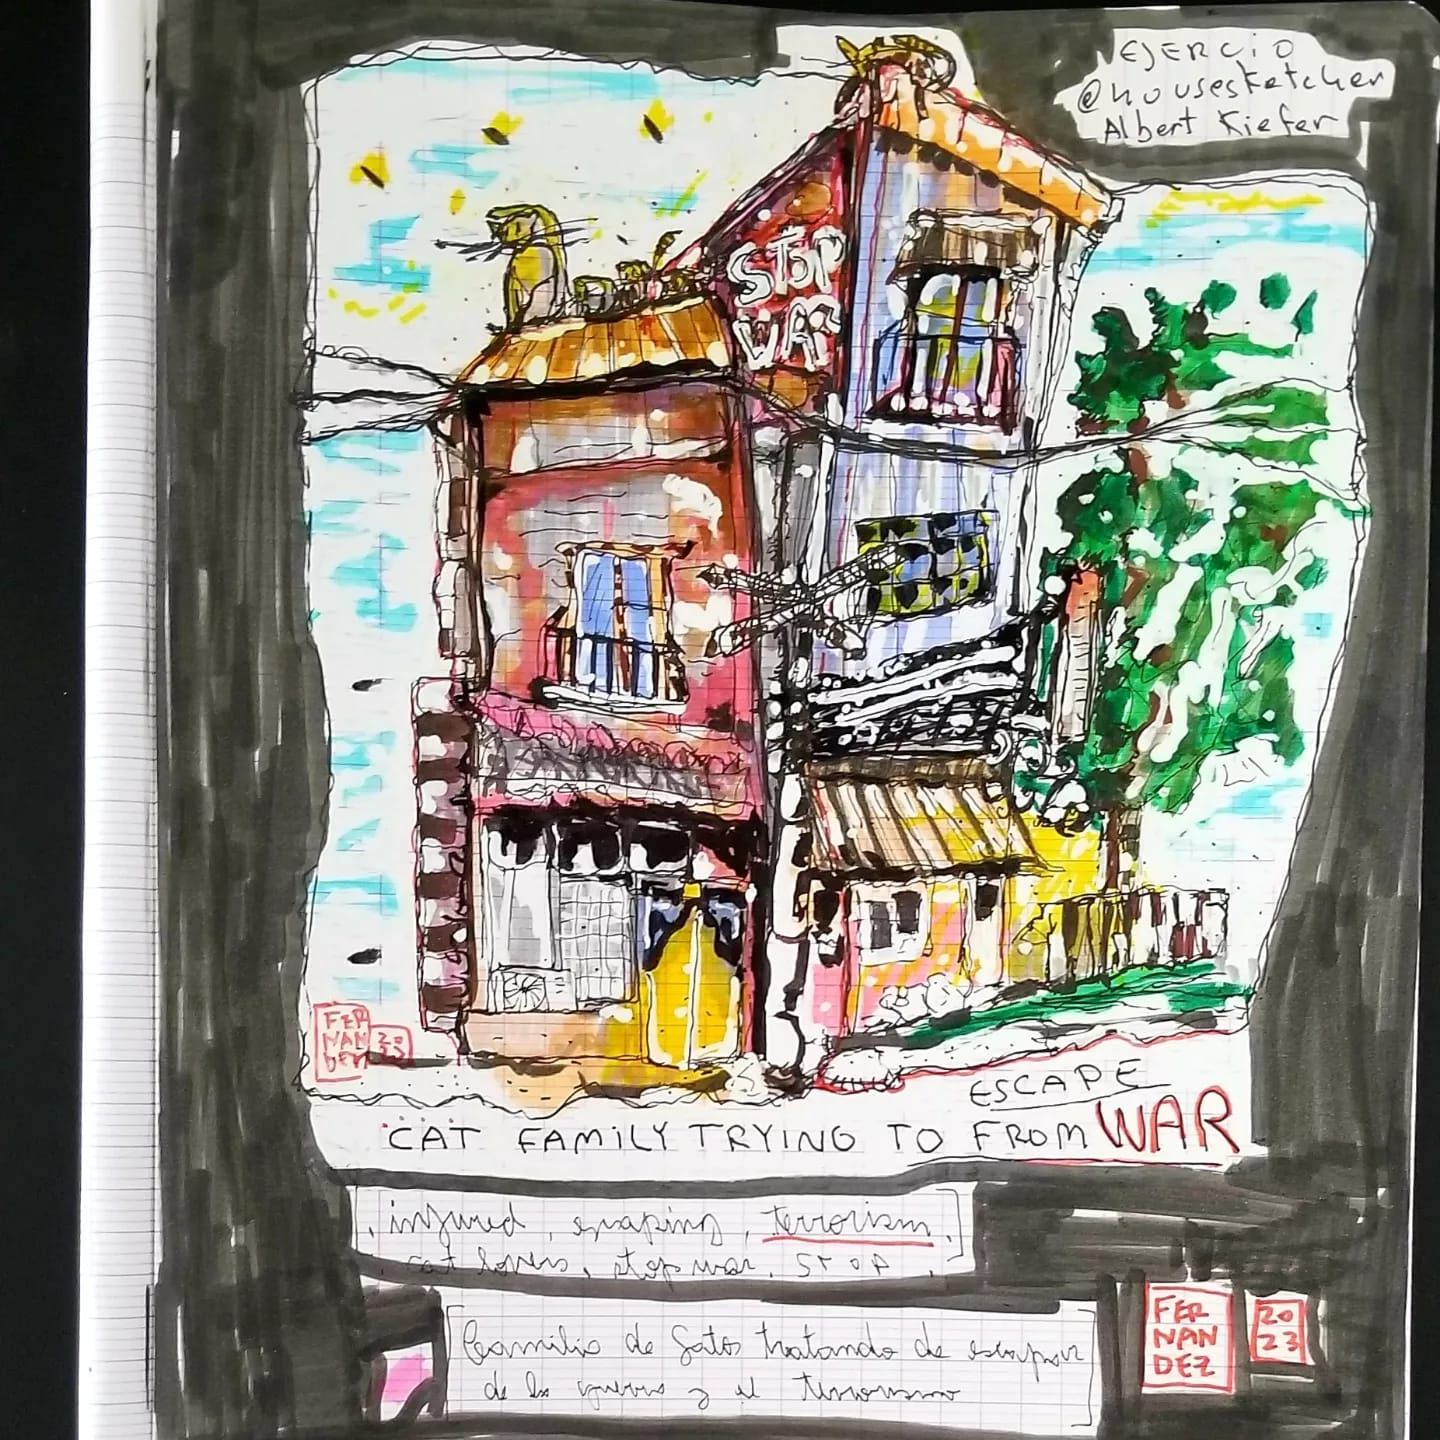 EJERCIO
@housesketcher
Albert Kiefer
STOP
WAR
FER
NAN
DEZ
20
23
ESCAPE
CAT FAMILY TRYING TO FROM WAR
. injured, escaping, terrorism.
. cat lovers, stop war. STOP.
Familia de Gatos tratando de escapar
de la guerra y el terrorismo
FER
NAN
DEZ
20
23